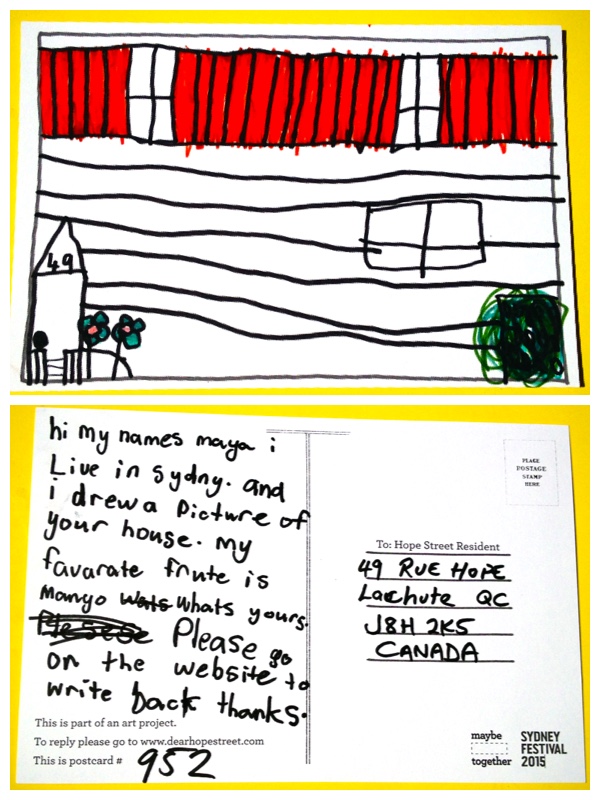 49
hi my names maya i
Live in Sydny. and
i drew a Picture of
your house. my
favarate frute is
Mango Wats Whats yours.
Plesese Please go
on the website to
write back thanks.
This is part of an art project.
To reply please go to www.dearhopestreet.com
This is postcard # 952
PLACE
POSTAGE
STAMP
HERE
To: Hope Street Resident
49 RUE HOPE
Lachute QC
J8H 2K5
CANADA
maybe
together
SYDNEY
FESTIVAL
2015